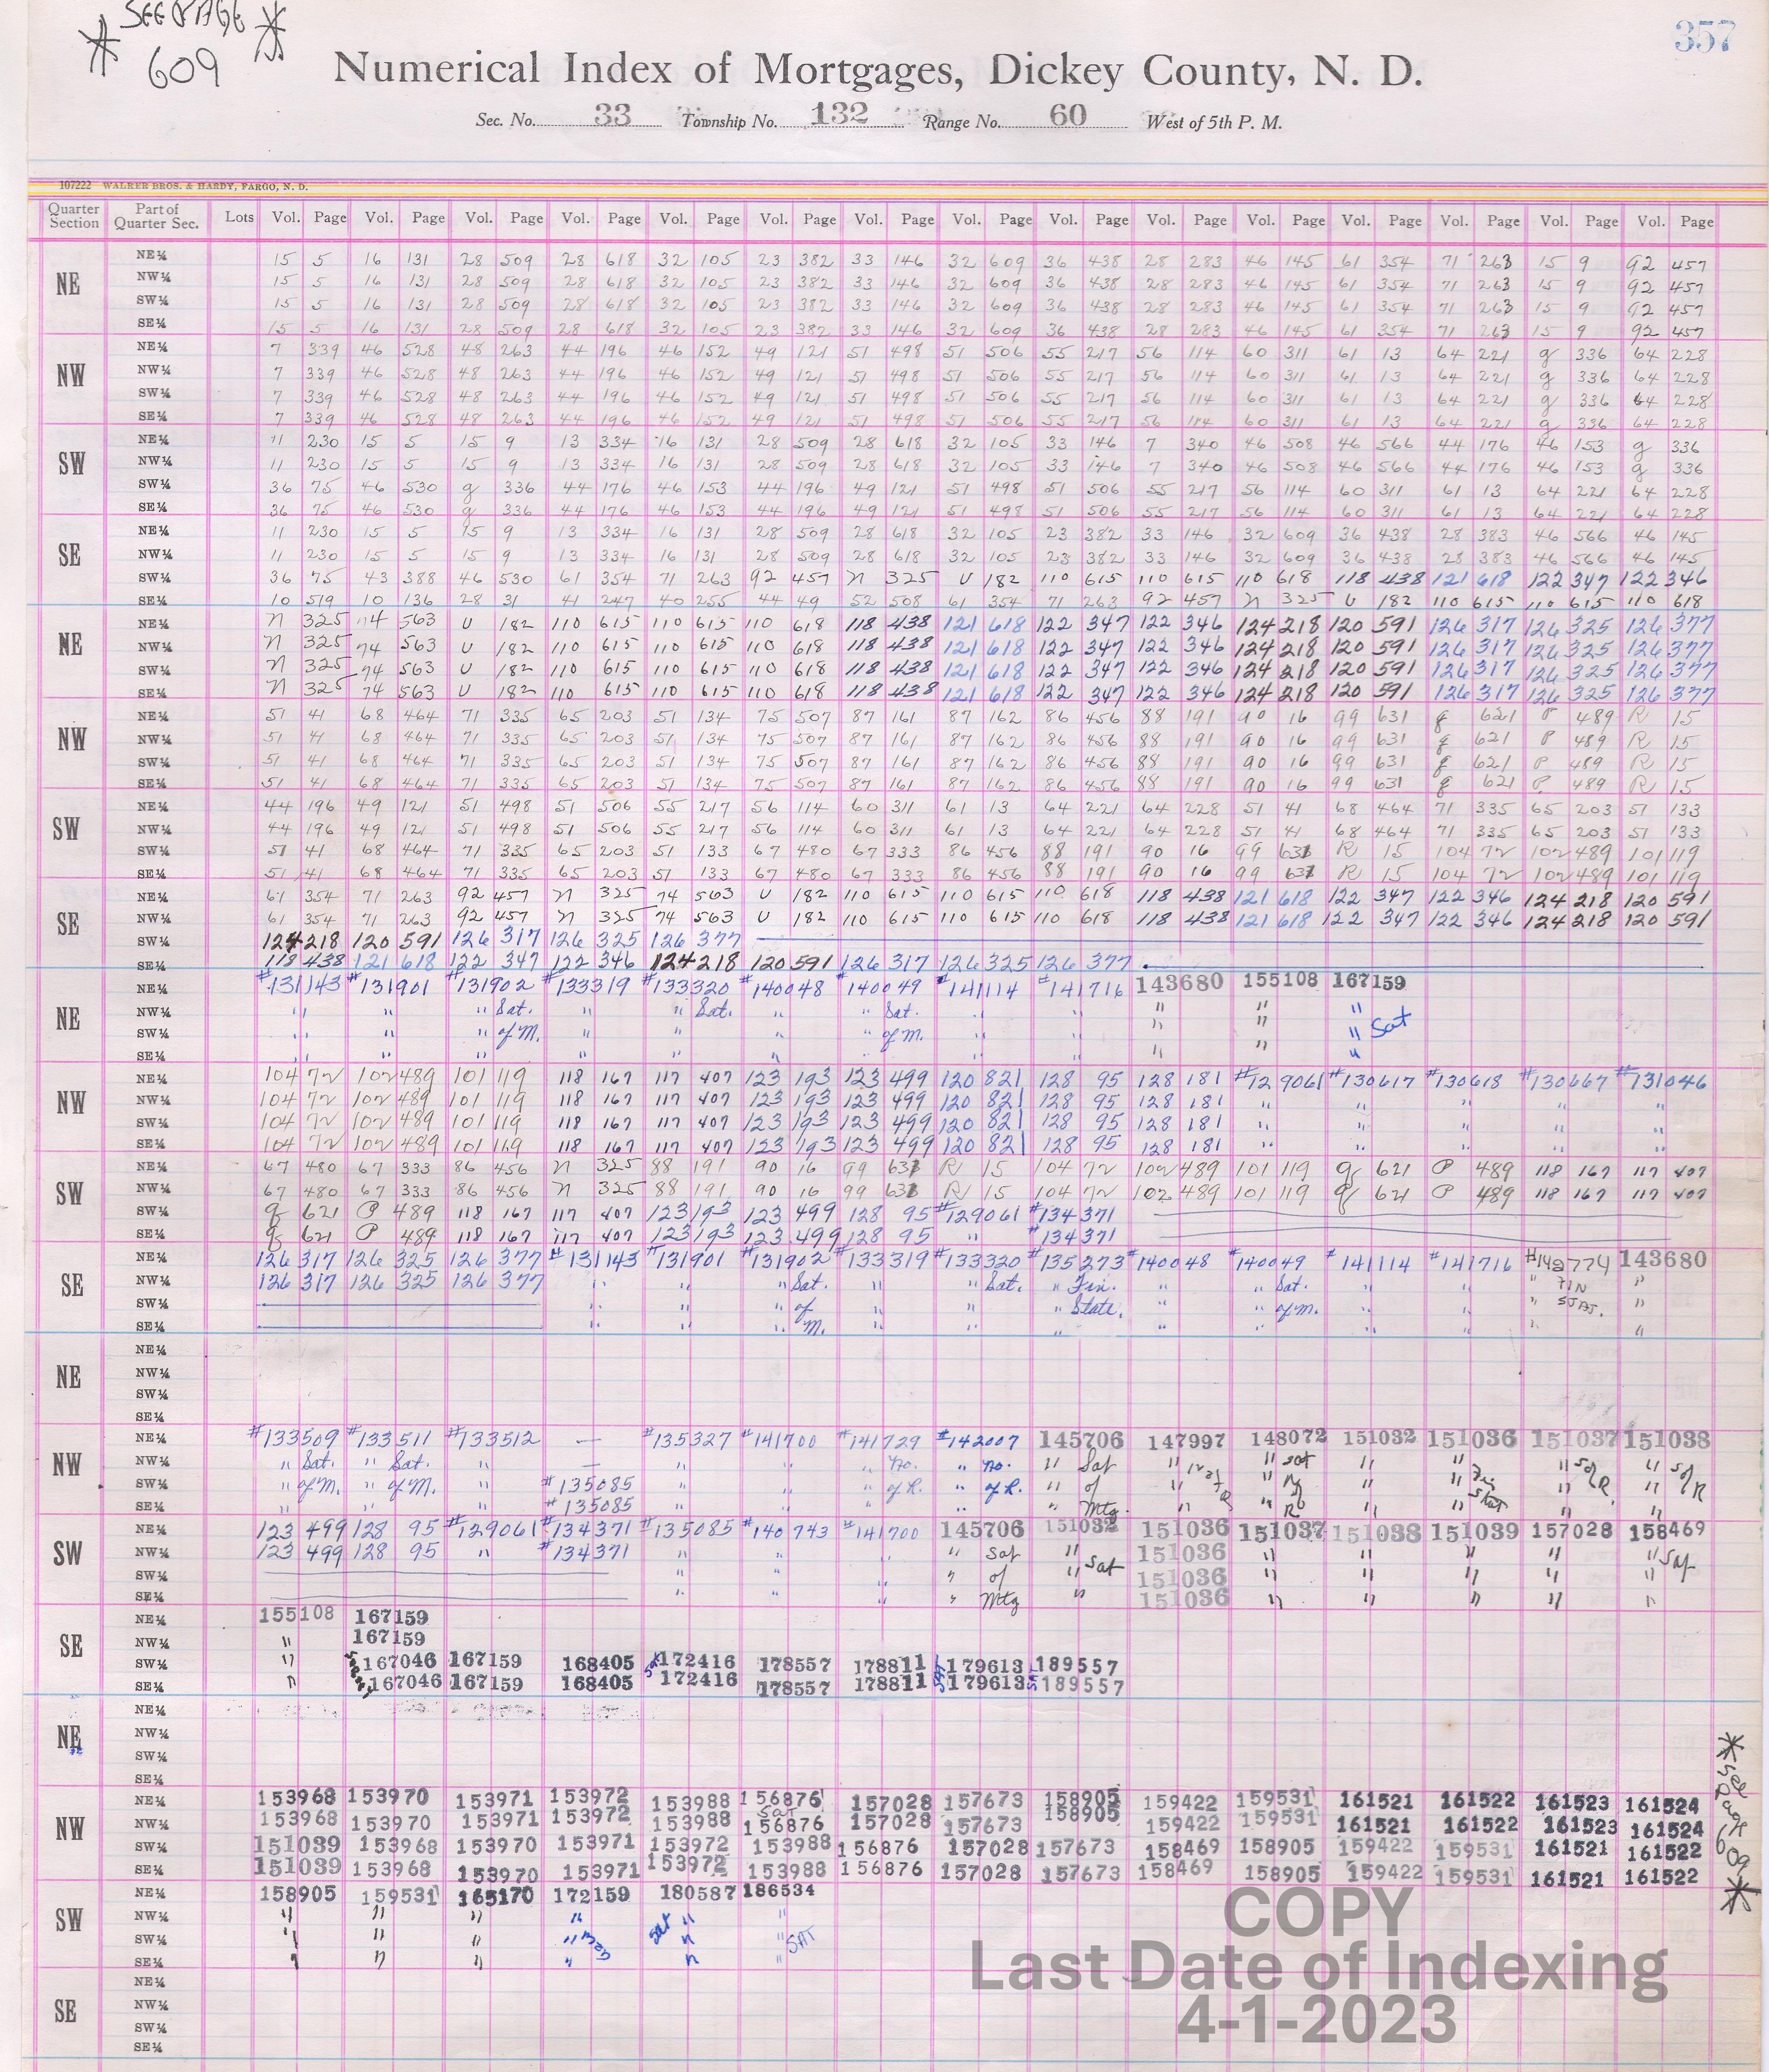 * SEE PAGE *
609
357
Numerical Index of Mortgages, Dickey County, N. D.
Sec. No. 33 Township No. 132 Range No. 60 West of 5th P. M.
107222 WALKER BROS. & HARDY, FARGO, N. D.
Quarter Section Part of Quarter Sec. Lots Vol. Page Vol. Page Vol. Page Vol. Page Vol. Page Vol. Page Vol. Page Vol. Page Vol. Page Vol. Page Vol. Page Vol. Page Vol. Page Vol. Page Vol. Page
NE
NE¼ 15 5 16 131 28 509 28 618 32 105 23 382 33 146 32 609 36 438 28 283 46 145 61 354 71 263 15 9 92 457
NW¼ 15 5 16 131 28 509 28 618 32 105 23 382 33 146 32 609 36 438 28 283 46 145 61 354 71 263 15 9 92 457
SW¼ 15 5 16 131 28 509 28 618 32 105 23 382 33 146 32 609 36 438 28 283 46 145 61 354 71 263 15 9 92 457
SE¼ 15 5 16 131 28 509 28 618 32 105 23 382 33 146 32 609 36 438 28 283 46 145 61 354 71 263 15 9 92 457
NW
NE¼ 7 339 46 528 48 263 44 196 46 152 49 121 51 498 51 506 55 217 56 114 60 311 61 13 64 221 g 336 64 228
NW¼ 7 339 46 528 48 263 44 196 46 152 49 121 51 498 51 506 55 217 56 114 60 311 61 13 64 221 g 336 64 228
SW¼ 7 339 46 528 48 263 44 196 46 152 49 121 51 498 51 506 55 217 56 114 60 311 61 13 64 221 g 336 64 228
SE¼ 7 339 46 528 48 263 44 196 46 152 49 121 51 498 51 506 55 217 56 114 60 311 61 13 64 221 g 336 64 228
SW
NE¼ 11 230 15 5 15 9 13 334 16 131 28 509 28 618 32 105 33 146 7 340 46 508 46 566 44 176 46 153 g 336
NW¼ 11 230 15 5 15 9 13 334 16 131 28 509 28 618 32 105 33 146 7 340 46 508 46 566 44 176 46 153 g 336
SW¼ 36 75 46 530 g 336 44 176 46 153 44 196 49 121 51 498 51 506 55 217 56 114 60 311 61 13 64 221 64 228
SE¼ 36 75 46 530 g 336 44 176 46 153 44 196 49 121 51 498 51 506 55 217 56 114 60 311 61 13 64 221 64 228
SE
NE¼ 11 230 15 5 15 9 13 334 16 131 28 509 28 618 32 105 23 382 33 146 32 609 36 438 28 383 46 566 46 145
NW¼ 11 230 15 5 15 9 13 334 16 131 28 509 28 618 32 105 23 382 33 146 32 609 36 438 28 383 46 566 46 145
SW¼ 36 75 43 388 46 530 61 354 71 263 92 457 N 325 U 182 110 615 110 615 110 618 118 438 121 618 122 347 122 346
SE¼ 10 519 10 136 28 31 41 247 40 255 44 49 52 508 61 354 71 263 92 457 N 325 U 182 110 615 110 615 110 618
NE
NE¼ N 325 74 563 U 182 110 615 110 615 110 618 118 438 121 618 122 347 122 346 124 218 120 591 126 317 126 325 126 377
NW¼ N 325 74 563 U 182 110 615 110 615 110 618 118 438 121 618 122 347 122 346 124 218 120 591 126 317 126 325 126 377
SW¼ N 325 74 563 U 182 110 615 110 615 110 618 118 438 121 618 122 347 122 346 124 218 120 591 126 317 126 325 126 377
SE¼ N 325 74 563 U 182 110 615 110 615 110 618 118 438 121 618 122 347 122 346 124 218 120 591 126 317 126 325 126 377
NW
NE¼ 51 41 68 464 71 335 65 203 51 134 75 507 87 161 87 162 86 456 88 191 90 16 99 631 g 621 P 489 R 15
NW¼ 51 41 68 464 71 335 65 203 51 134 75 507 87 161 87 162 86 456 88 191 90 16 99 631 g 621 P 489 R 15
SW¼ 51 41 68 464 71 335 65 203 51 134 75 507 87 161 87 162 86 456 88 191 90 16 99 631 g 621 P 489 R 15
SE¼ 51 41 68 464 71 335 65 203 51 134 75 507 87 161 87 162 86 456 88 191 90 16 99 631 g 621 P 489 R 15
SW
NE¼ 44 196 49 121 51 498 51 506 55 217 56 114 60 311 61 13 64 221 64 228 51 41 68 464 71 335 65 203 51 133
NW¼ 44 196 49 121 51 498 51 506 55 217 56 114 60 311 61 13 64 221 64 228 51 41 68 464 71 335 65 203 51 133
SW¼ 51 41 68 464 71 335 65 203 51 133 67 480 67 333 86 456 88 191 90 16 99 631 R 15 104 72 102 489 101 119
SE¼ 51 41 68 464 71 335 65 203 51 133 67 480 67 333 86 456 88 191 90 16 99 631 R 15 104 72 102 489 101 119
SE
NE¼ 61 354 71 263 92 457 N 325 74 563 U 182 110 615 110 615 110 618 118 438 121 618 122 347 122 346 124 218 120 591
NW¼ 61 354 71 263 92 457 N 325 74 563 U 182 110 615 110 615 110 618 118 438 121 618 122 347 122 346 124 218 120 591
SW¼ 124 218 120 591 126 317 126 325 126 377
SE¼ 118 438 121 618 122 347 122 346 124 218 120 591 126 317 126 325 126 377
NE
NE¼ #131143 #131901 #131902 #133319 #133320 #140048 #140049 #141114 #141716 143680 155108 167159
NW¼ " " " Sat. " " Sat. " " Sat. " " " " "
SW¼ " " " of M. " " " " of M. " " " " " Sat
SE¼ " " " " " " " " " " " "
NW
NE¼ 104 72 102 489 101 119 118 167 117 407 123 193 123 499 120 821 128 95 128 181 #129061 #130617 #130618 #130667 #131046
NW¼ 104 72 102 489 101 119 118 167 117 407 123 193 123 499 120 821 128 95 128 181 " " " " "
SW¼ 104 72 102 489 101 119 118 167 117 407 123 193 123 499 120 821 128 95 128 181 " " " " "
SE¼ 104 72 102 489 101 119 118 167 117 407 123 193 123 499 120 821 128 95 128 181 " " " " "
SW
NE¼ 67 480 67 333 86 456 N 325 88 191 90 16 99 631 R 15 104 72 102 489 101 119 g 621 P 489 118 167 117 407
NW¼ 67 480 67 333 86 456 N 325 88 191 90 16 99 631 R 15 104 72 102 489 101 119 g 621 P 489 118 167 117 407
SW¼ g 621 P 489 118 167 117 407 123 193 123 499 128 95 #129061 #134371
SE¼ g 621 P 489 118 167 117 407 123 193 123 499 128 95 #134371
SE
NE¼ 126 317 126 325 126 377 #131143 #131901 #131902 #133319 #133320 #135273 #140048 #140049 #141114 #141716 #142774 143680
NW¼ 126 317 126 325 126 377 " " " Sat. " " Sat. " Fin. " " Sat. " " " FIN "
SW¼ " " " of " " " State. " " of M. " " " STAT. "
SE¼ " " " M. " " " " " " " " "
NE
NE¼
NW¼
SW¼
SE¼
NW
NE¼ #133509 #133511 #133512 — #135327 #141700 #141729 #142007 145706 147997 148072 151032 151036 151037 151038
NW¼ " Sat. " Sat. " — " " " no. " no. " Sat " " sat " " " "
SW¼ " of M. " of M. " #135085 " " " of R. " of R. " of " " " " " "
SE¼ " " " #135085 " " " " " Mtg. " " " " " "
SW
NE¼ 123 499 128 95 #129061 #134371 #135085 #140743 #141700 145706 151032 151036 151037 151038 151039 157028 158469
NW¼ 123 499 128 95 " #134371 " " " " Sat " 151036 " " " " " Sat
SW¼ " " " " of " Sat 151036 " " " " "
SE¼ " " " " Mtg " 151036 " " " " "
SE
NE¼ 155108 167159
NW¼ " 167159
SW¼ " 167046 167159 168405 Sat 172416 178557 178811 SAT 179613 SAT 189557
SE¼ " 167046 167159 168405 172416 178557 178811 179613 189557
NE
NE¼
NW¼
SW¼
SE¼
NW
NE¼ 153968 153970 153971 153972 153988 156876 157028 157673 158905 159422 159531 161521 161522 161523 161524
NW¼ 153968 153970 153971 153972 153988 Sat 156876 157028 157673 158905 159422 159531 161521 161522 161523 161524
SW¼ 151039 153968 153970 153971 153972 153988 156876 157028 157673 158469 158905 159422 159531 161521 161522
SE¼ 151039 153968 153970 153971 153972 153988 156876 157028 157673 158469 158905 159422 159531 161521 161522
SW
NE¼ 158905 159531 165170 172159 180587 186534
NW¼ " " " " Sat " "
SW¼ " " " " " " SAT
SE¼ " " " " " "
SE
NE¼
NW¼
SW¼
SE¼
* see page 609 *
COPY
Last Date of Indexing
4-1-2023